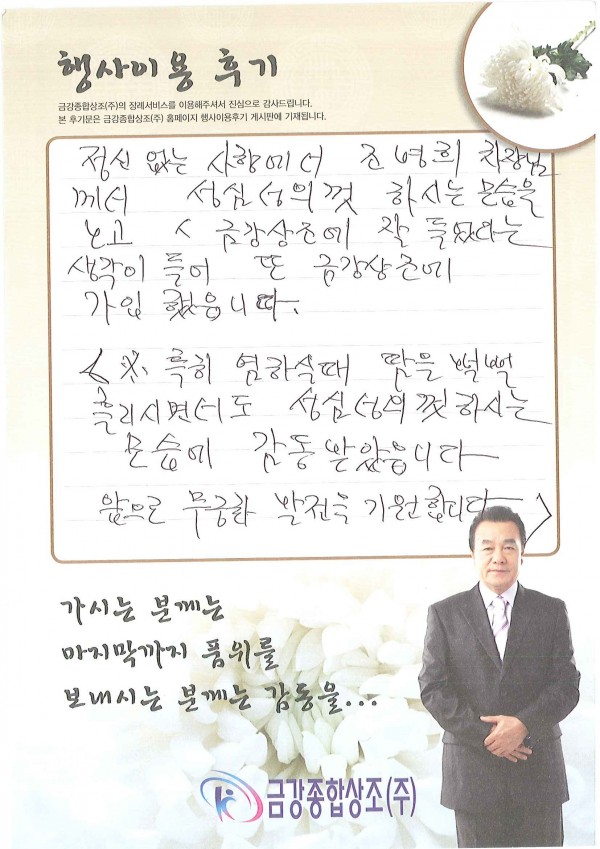 행사이용 후기
금강종합상조(주)의 장례서비스를 이용해주셔서 진심으로 감사드립니다.
본 후기문은 금강종합상조(주) 홈페이지 행사이용후기 게시판에 기재됩니다.
정신 없는 사항에서 조병희 차장님
께서 성심성의껏 하시는 모습을
보고 금강상조에 잘 들었다는
생각이 들어 또 금강상조에
가입 했읍니다.
※ 특히 염하실때 땀을 뻘뻘
흘리시면서도 성심성의껏하시는
모습에 감동받았읍니다
앞으로 무궁한 발전을 기원합니다
가시는 분께는
마지막까지 품위를
보내시는 분께는 감동을...
금강종합상조(주)